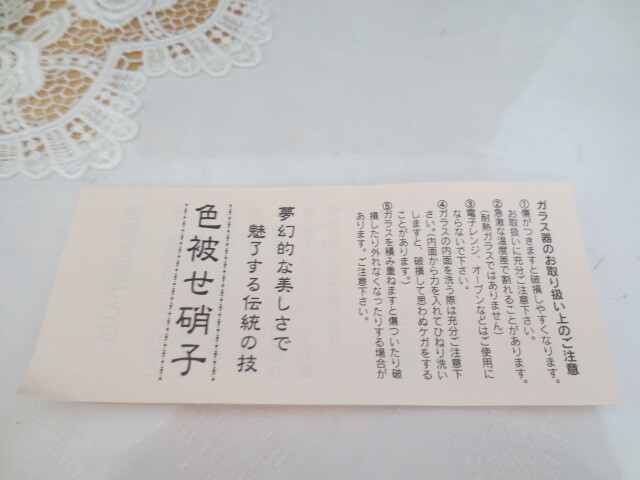 ガラス器のお取り扱い上のご注意
①傷がつきますと破損しやすくなります。
お取扱いに充分ご注意下さい。
②急激な温度差で割れることがあります。
(耐熱ガラスではありません)
③電子レンジ、オーブンなどはご使用に
ならないで下さい。
④ガラスの内面を洗う際は充分ご注意下
さい。(内面から力を入れてひねり洗い
しますと、破損して思わぬケガをする
ことがあります。)
⑤ガラスを積み重ねますと傷ついたり破
損したり外れなくなったりする場合が
あります。ご注意下さい。
夢幻的な美しさで
魅了する伝統の技
色被せ硝子